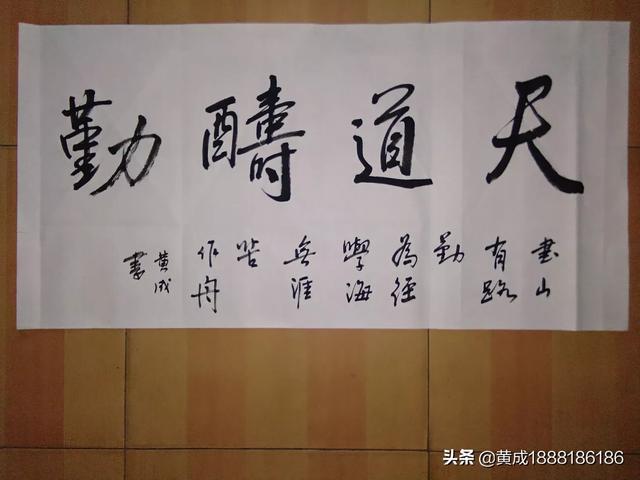 天道醻勤
書山
有路
勤
為徑
學海
無涯
苦
作舟
黄成
書
头条 @黄成1888186186